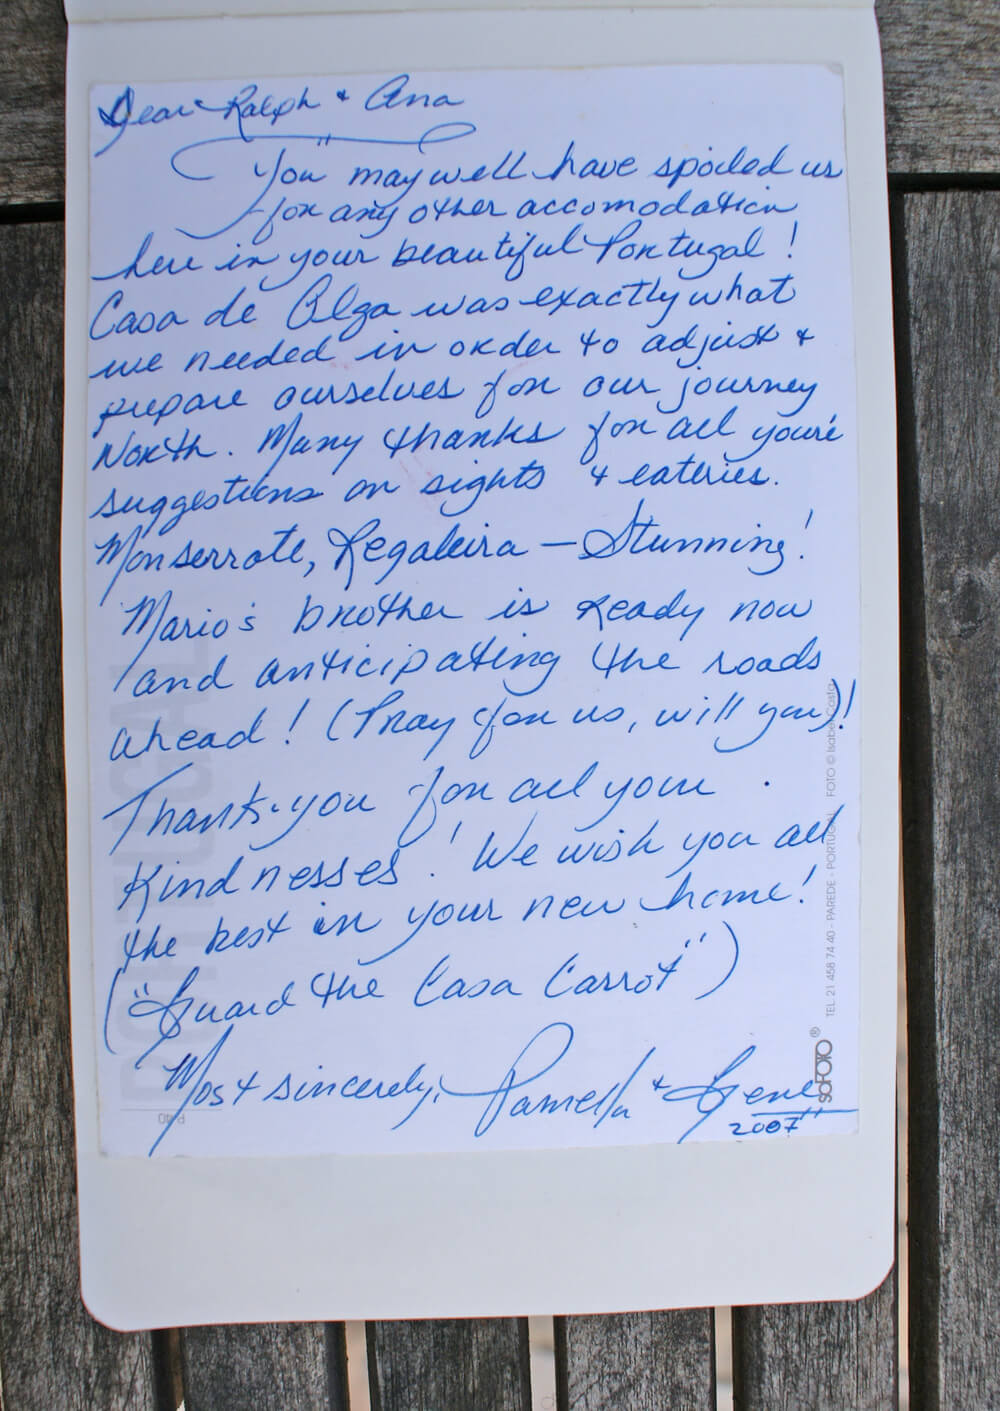 Dear Ralph + Ana
"You may well have spoiled us
for any other accomodation
here in your beautiful Portugal!
Casa de Olga was exactly what
we needed in order to adjust +
prepare ourselves for our journey
North. Many thanks for all your
suggestions on sights + eateries.
Monserrate, Regaleira — Stunning!
Mario's brother is ready now
and anticipating the roads
ahead! (Pray for us, will you)!
Thank-you for all your
kindnesses! We wish you all
the best in your new home!
("Guard the Casa Carrot")
Most sincerely, Pamella + Gene"
2007
PORTUGAL
P.40
soFOTO®
TEL 21 458 74 40 - PAREDE - PORTUGAL FOTO © Isabel Costa